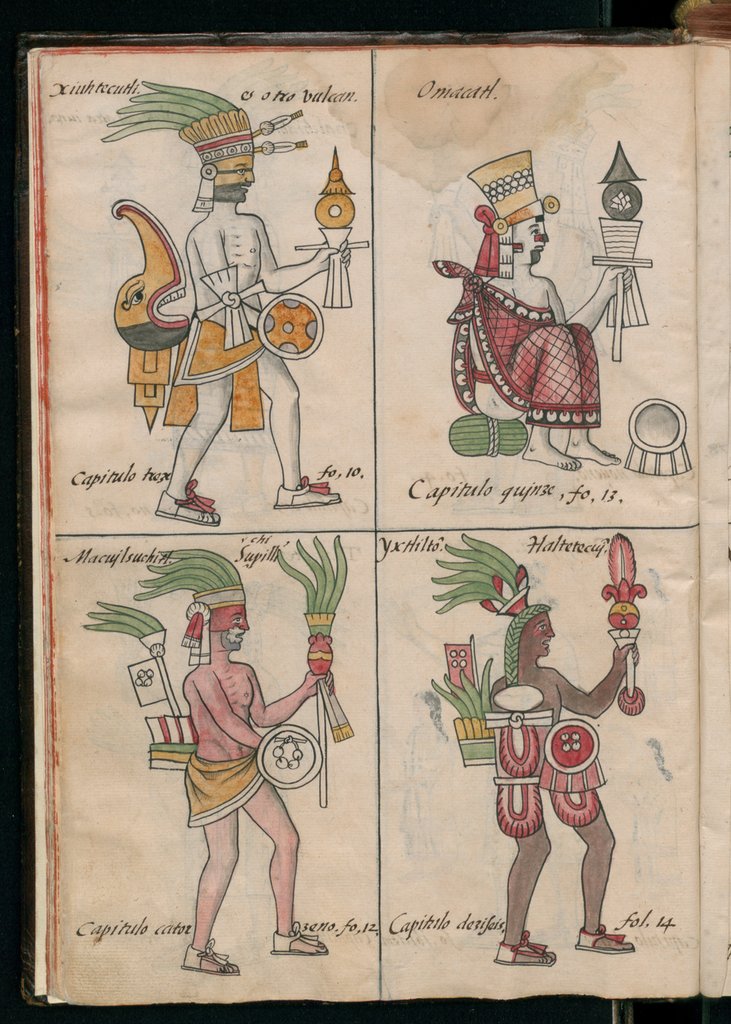 Xiuhtecutli. es otro vulcan.
Capitulo trez fo, 10.
Omacatl.
Capitulo quinze, fo, 13.
Macuilsuchitl. ychi
Capitulo cator zeno. fo, 12
yxtlilto.
Capitulo deziseis, fol, 14